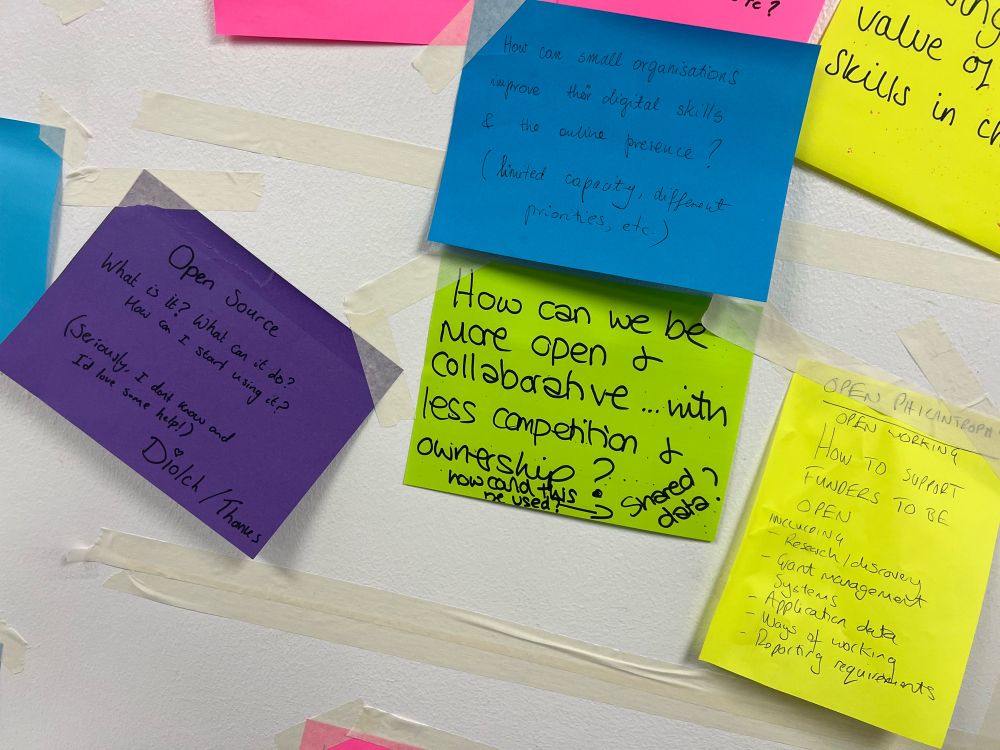 How can small organisations
improve their digital skills
& the online presence?
(limited capacity, different
priorities, etc.)
value of
skills in
Open Source
What is it? What can it do?
How can I start using it?
(Seriously, I dont know and
I'd love some help!)
Diolch / Thanks
How can we be
More open &
collaborative ... with
less competition &
ownership?
how could this
be used?
Shared
data?
OPEN PHILANTHROPY
OPEN WORKING
HOW TO SUPPORT
FUNDERS TO BE
OPEN
INCLUDING
- Research/discovery
- Grant management
Systems
- Application data
- Ways of working
- Reporting requirements